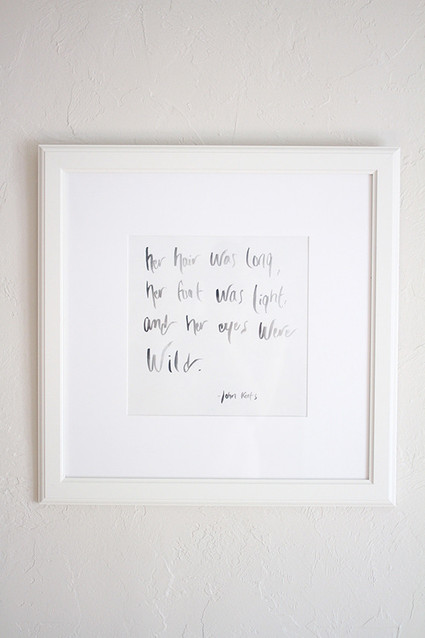 her hair was long,
her foot was light.
and her eyes were
Wild.
-John Keats